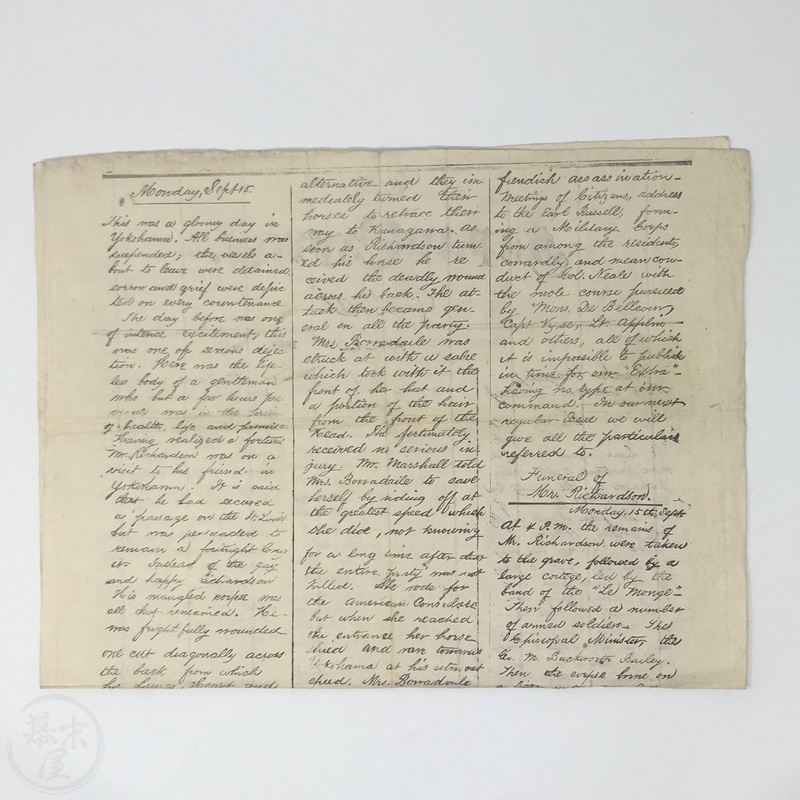 Monday, Sept 15.
This was a gloomy day in
Yokohama. All business was
suspended; the vessels a-
bout to leave were detained,
sorrow and grief were depic
ted on every countenance
The day before was one
of intence excitement, this
was one of serious dejec
tion. Here was the life-
less body of a gentleman
who but a few hours pre
vious was in the
of health, life and promise
Having realized a fortune
Mr. Richardson was on a
visit to his friend in
Yokohama. It is said
that he had secured
a passage on the St. Louis
but was persuaded to
remain a fortnight long
er. Instead of the gay
and happy Richardson
His mangled corpse was
all that remained. He
was frightfully wounded
one cut diagonally across
the back from which
his Lungs, Heart and
alternative and they im
mediately turned their
horses to retrace their
way to Kawagawa. as
soon as Richardson turn
ed his horse he re
ceived the deadly wound
across his back. The at-
tack then became gen-
eral on all the party.
Mrs Borradaile was
struck at with a sabre
which took with it the
front of her hat and
a portion of the hair
from the front of the
Head. She fortunately
received no serious in-
jury. Mr. Marshall told
Mrs. Borradaile to save
herself by riding off at
the greatest speed which
she did, not knowing
for a long time after that
the entire party was not
killed. She rode for
the American Consulate
but when she reached
the entrance her horse
shied and ran towards
Yokohama at his utmost
speed. Mrs. Borradaile
fiendish assassination-
Meetings of Citizens, address
to the Earl Russell, form-
ing a Military Corps
from among the residents,
cowardly and mean con-
duct of Col. Neale with
the whole course pursued
by Mons. De Bellcour,
Capt Vyse, Lt. Applin
and others, all of which
it is impossible to publish
in time for our "Extra"-
having no type at our
command. In our next
regular Issue we will
give all the particulars
referred to.
Funeral of
Mr. Richardson.
Monday, 15th, Sept.
At 4 P.M. the remains of
Mr. Richardson were taken
to the grave, followed by a
large cortege, led by the
band of the "Le Monge"-
Then followed a number
of armed soldiers. The
Episcopal Minister, the
Rev. M. Buckworth Bailey.
Then the corpse borne on
幕末屋